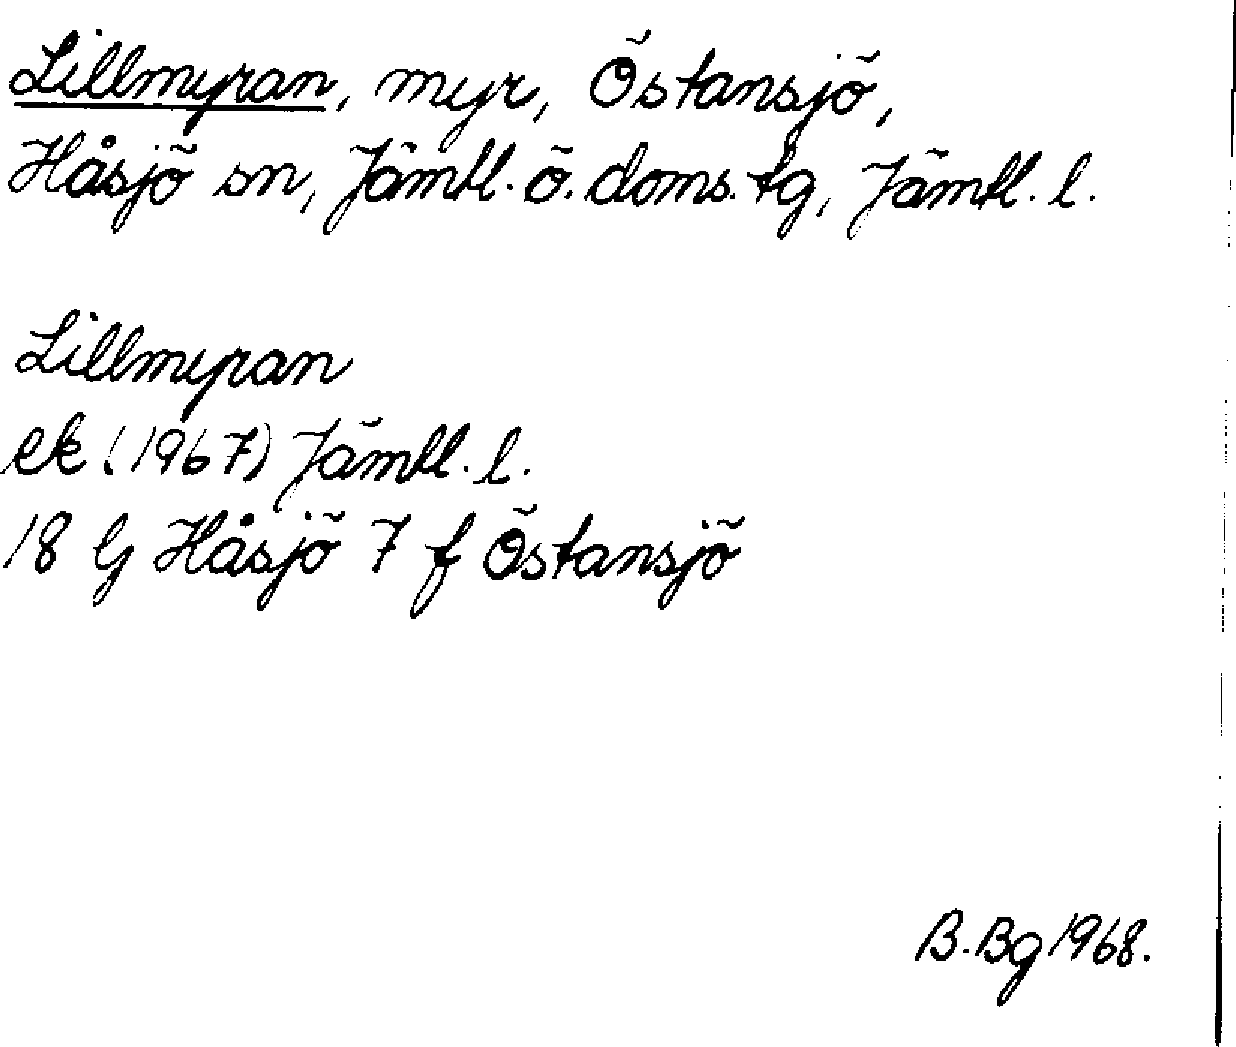 Lillmyran, myr, Östansjö,
Håsjö sn, Jämtl. ö. doms. tg, Jämtl. l.
Lillmyran
ek (1967) Jämtl. l.
18 G Håsjö 7 f Östansjö
B. Bg 1968.